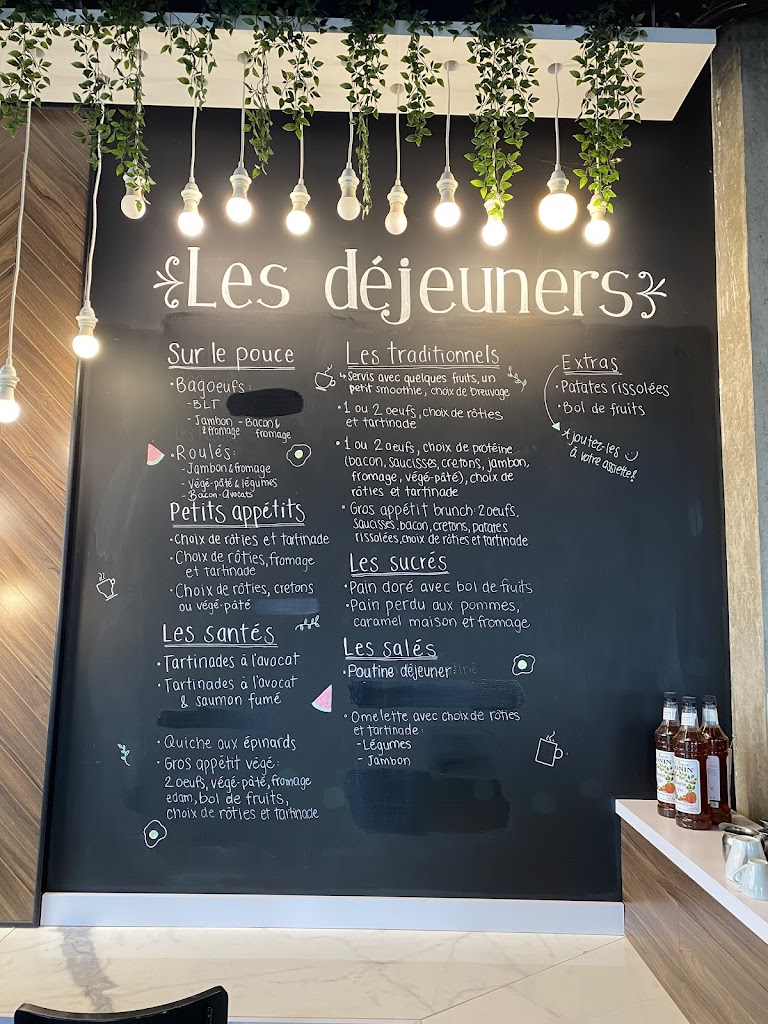 Les déjeuners
Sur le pouce
• Bagoeufs:
- BLT
- Jambon & fromage
- Bacon & fromage
• Roulés:
- Jambon & fromage
- Végé-pâté & légumes
- Bacon-Avocats
Petits appétits
• Choix de rôties et tartinade
• Choix de rôties, fromage
et tartinade
• Choix de rôties, cretons
ou végé-pâté
Les santés
• Tartinades à l'avocat
• Tartinades à l'avocat
& saumon fumé
• Quiche aux épinards
• Gros appétit végé:
2 oeufs, végé-pâté, fromage
edam, bol de fruits,
choix de rôties et tartinade
Les traditionnels
↳ Servis avec quelques fruits, un
petit smoothie, choix de breuvage
• 1 ou 2 oeufs, choix de rôties
et tartinade
• 1 ou 2 oeufs, choix de protéine
(bacon, saucisses, cretons, jambon,
fromage, végé-pâté), choix de
rôties et tartinade
• Gros appétit brunch: 2 oeufs,
saucisses, bacon, cretons, patates
rissolées, choix de rôties et tartinade
Les sucrés
• Pain doré avec bol de fruits
• Pain perdu aux pommes,
caramel maison et fromage
Les salés
• Poutine déjeuner
• Omelette avec choix de rôties
et tartinade:
- Légumes
- Jambon
Extras
• Patates rissolées
• Bol de fruits
Ajoutez-les
à votre assiette!
MONIN